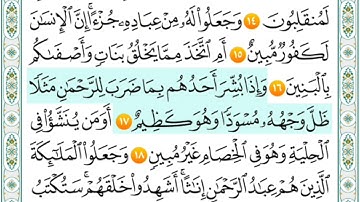 لَمُنقَلِبُونَ ١٤ وَجَعَلُوا۟ لَهُۥ مِنْ عِبَادِهِۦ جُزْءًا ۚ إِنَّ ٱلْإِنسَٰنَ
لَكَفُورٌ مُّبِينٌ ١٥ أَمِ ٱتَّخَذَ مِمَّا يَخْلُقُ بَنَاتٍ وَأَصْفَىٰكُم
بِٱلْبَنِينَ ١٦ وَإِذَا بُشِّرَ أَحَدُهُم بِمَا ضَرَبَ لِلرَّحْمَٰنِ مَثَلًا
ظَلَّ وَجْهُهُۥ مُسْوَدًّا وَهُوَ كَظِيمٌ ١٧ أَوَمَن يُنَشَّؤُا۟ فِى
ٱلْحِلْيَةِ وَهُوَ فِى ٱلْخِصَامِ غَيْرُ مُبِينٍ ١٨ وَجَعَلُوا۟ ٱلْمَلَٰٓئِكَةَ
ٱلَّذِينَ هُمْ عِبَٰدُ ٱلرَّحْمَٰنِ إِنَٰثًا ۚ أَشَهِدُوا۟ خَلْقَهُمْ ۚ سَتُكْتَبُ